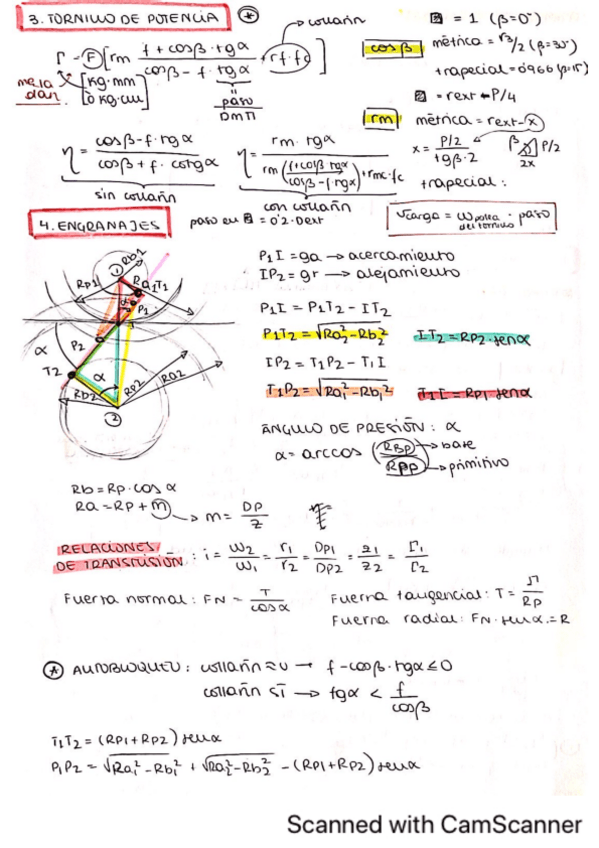 3. TORNILLO DE POTENCIA *
Γ = F [rm (f + cosβ · tgα)/(cosβ - f · tgα) + rf · fc] → collarín
[kg·mm]
[ó kg·cm]
paso
DmΠ
= 1 (β=0°)
cosβ métrica = √3/2 (β=30°)
trapecial = 0'966 (β=15)
= rext - P/4
rm métrica = rext - x
x = (P/2)/(tgβ·2)
β P/2
2x
trapecial:
η = (cosβ - f · tgα)/(cosβ + f · cotgα)
sin collarín
η = (rm · tgα)/(rm((f + cosβ tgα)/(cosβ - f tgα)) + rmc · fc)
con collarín
4. ENGRANAJES
paso en = 0'2 · Dext
Vcarga = ωpolea del tornillo · paso
P1I = ga → acercamiento
IP2 = gr → alejamiento
P1I = P1T2 - IT2
P1T2 = √(Ra2² - Rb2²) IT2 = RP2 · senα
IP2 = T1P2 - T1I
T1P2 = √(Ra1² - Rb1²) T1I = RP1 · senα
Rb1
Rp1
Ra1
T1
P1
P2
T2
α
α
Rb2
RP2
Ra2
1
2
ÁNGULO DE PRESIÓN : α
α = arccos (RBP/RPP) → base → primitivo
Rb = Rp · cos α
Ra = RP + m → m = DP/Z
RELACIONES DE TRANSMISIÓN : i = ω2/ω1 = r1/r2 = DP1/DP2 = z1/z2 = Γ1/Γ2
Fuerza normal : FN = T/cosα Fuerza tangencial : T = Γ/RP
Fuerza radial : FN · senα = R
* AUTOBLOQUEO : collarín no → f - cosβ · tgα ≤ 0
collarín sí → tgα < f/cosβ
T1T2 = (RP1 + RP2) senα
P1P2 = √(Ra1² - Rb1²) + √(Ra2² - Rb2²) - (RP1 + RP2) senα
Scanned with CamScanner